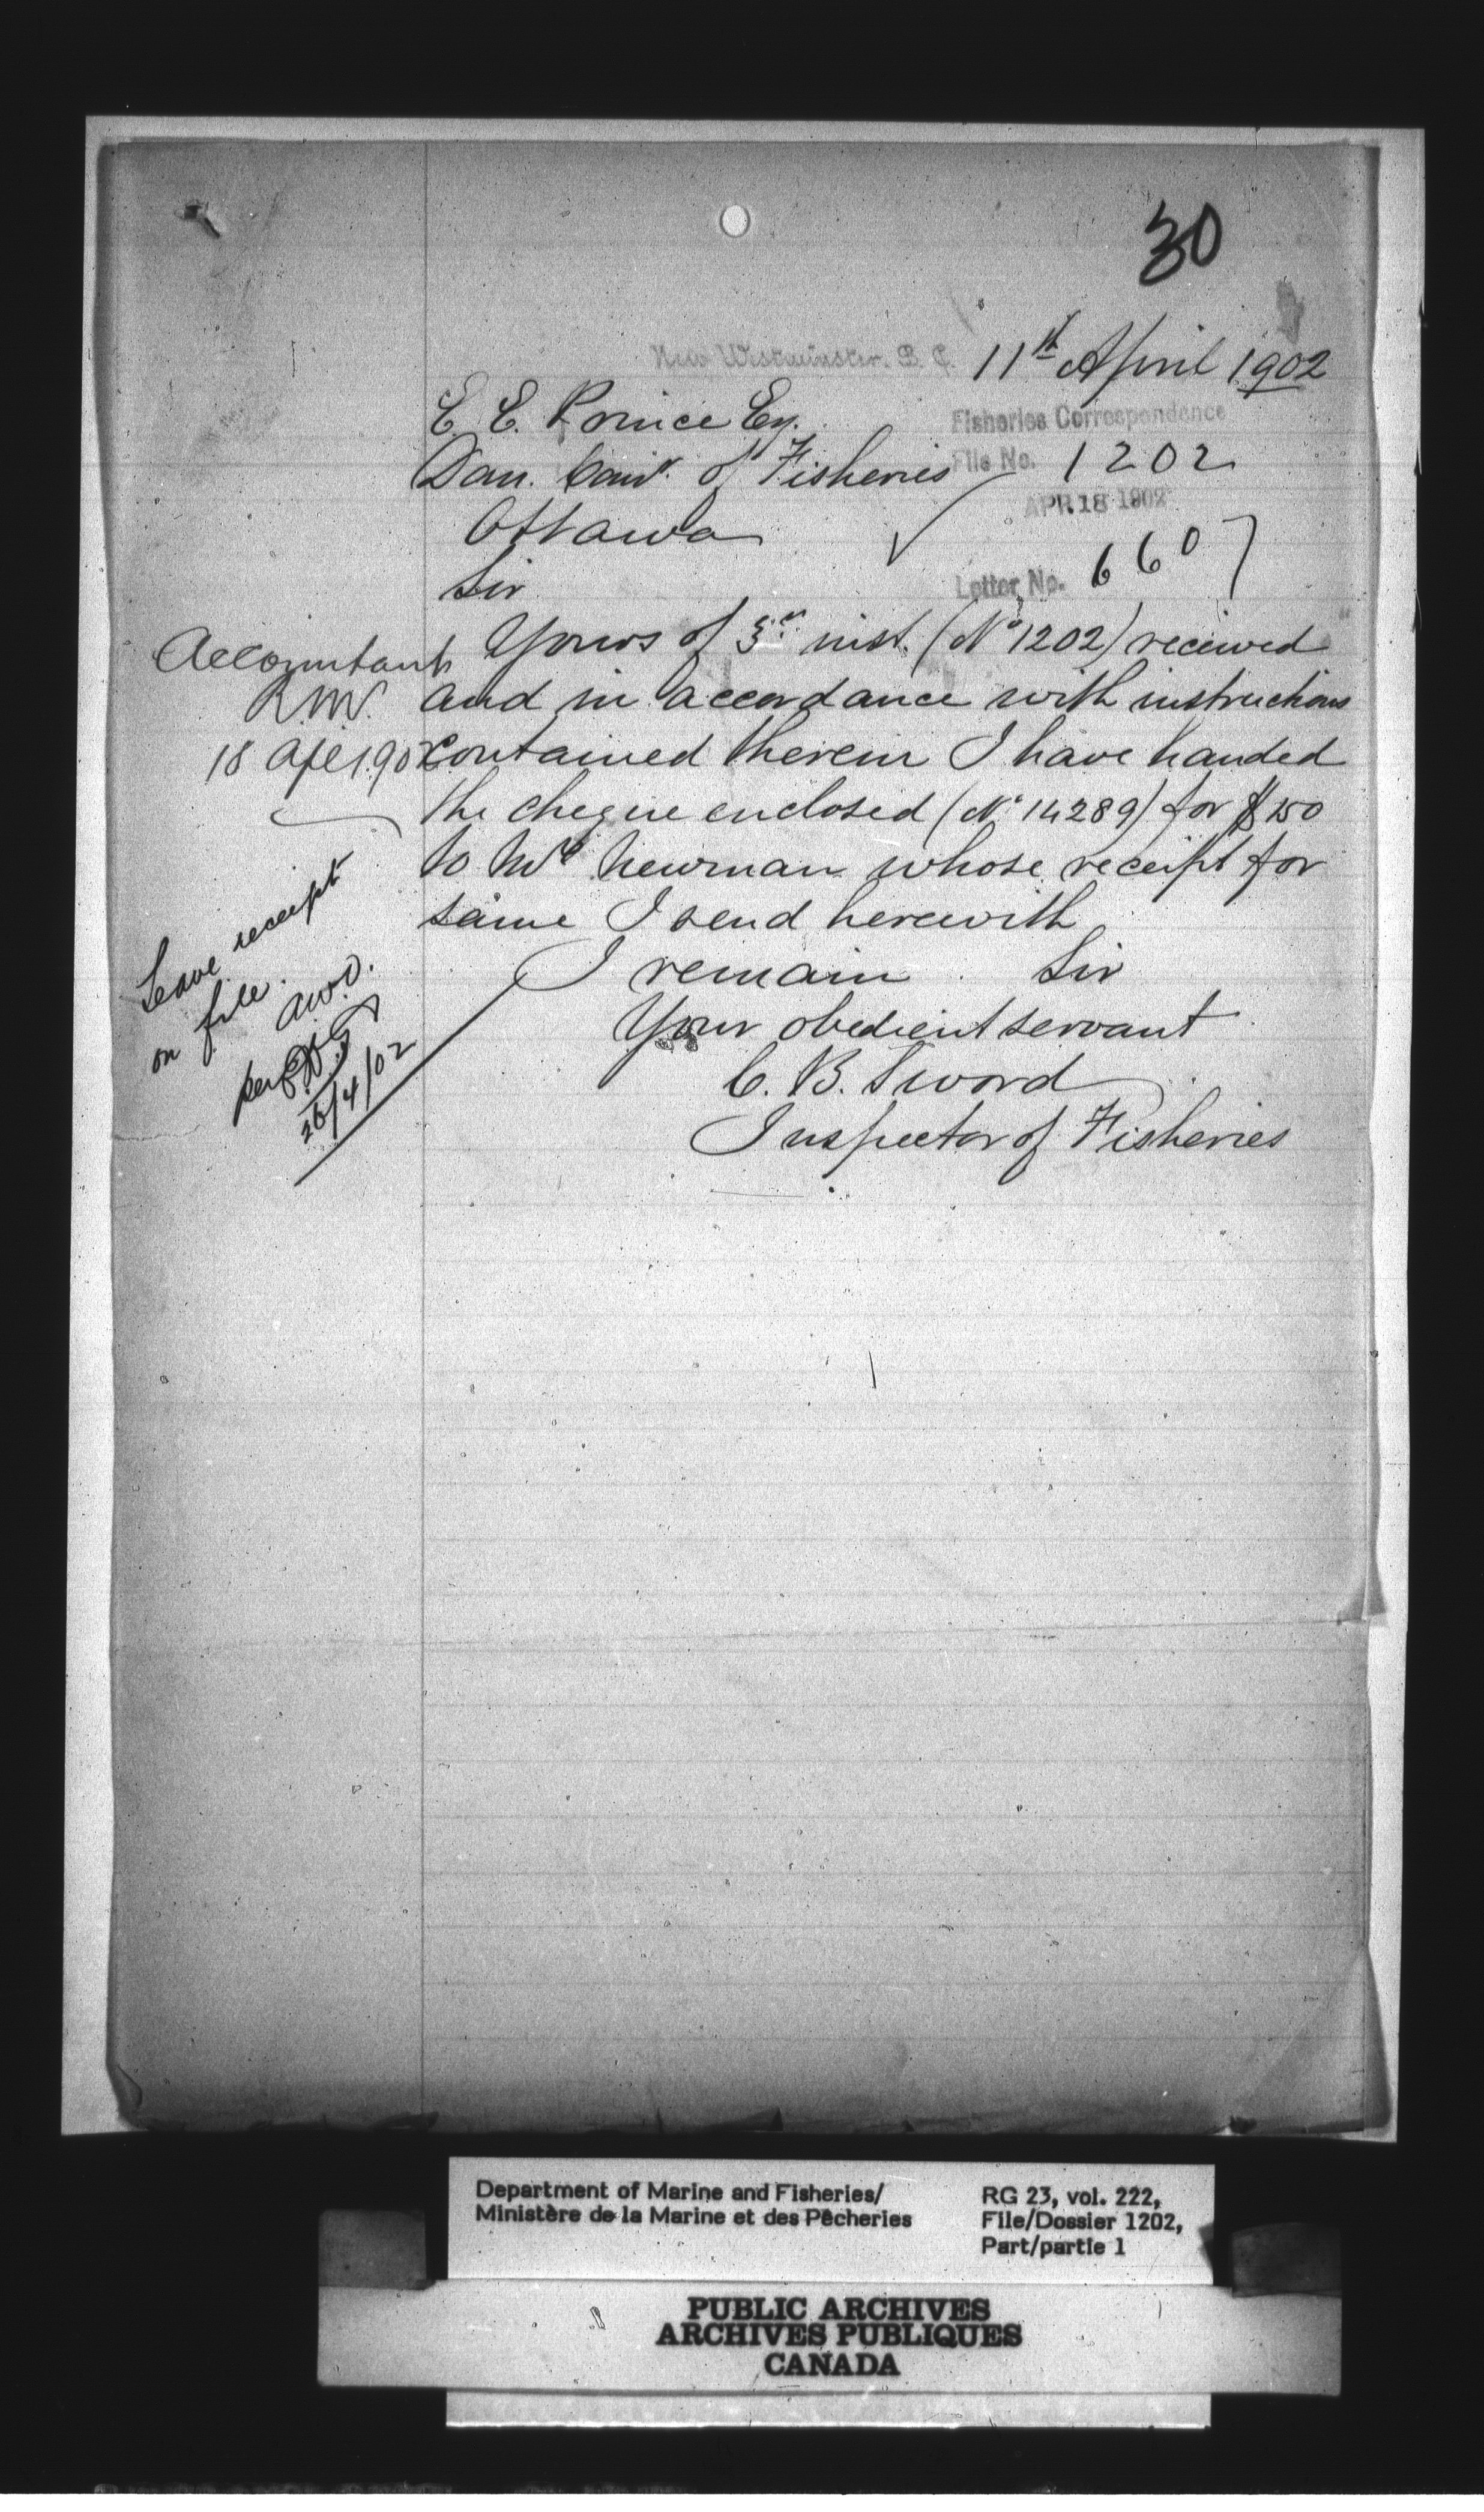 30
New Westminster, B. C. 11th April 1902
E. E. Prince Esq.
Dom. Comr. of Fisheries
Ottawa
Fisheries Correspondence
File No. 1202
APR. 18 1902
Letter No. 6607
Sir
Yours of 3rd inst. (No 1202) received
and in accordance with instructions
contained therein I have handed
the cheque enclosed (No 14289) for $150
to Mr Newman whose receipt for
same I send herewith
I remain Sir
Your obedient servant
C. B. Sword
Inspector of Fisheries
Accountant
R.W.
18 Apl 1902
Leave receipt
on file.
per
26/4/02
Department of Marine and Fisheries/
Ministère de la Marine et des Pêcheries
RG 23, vol. 222,
File/Dossier 1202,
Part/partie 1
PUBLIC ARCHIVES
ARCHIVES PUBLIQUES
CANADA